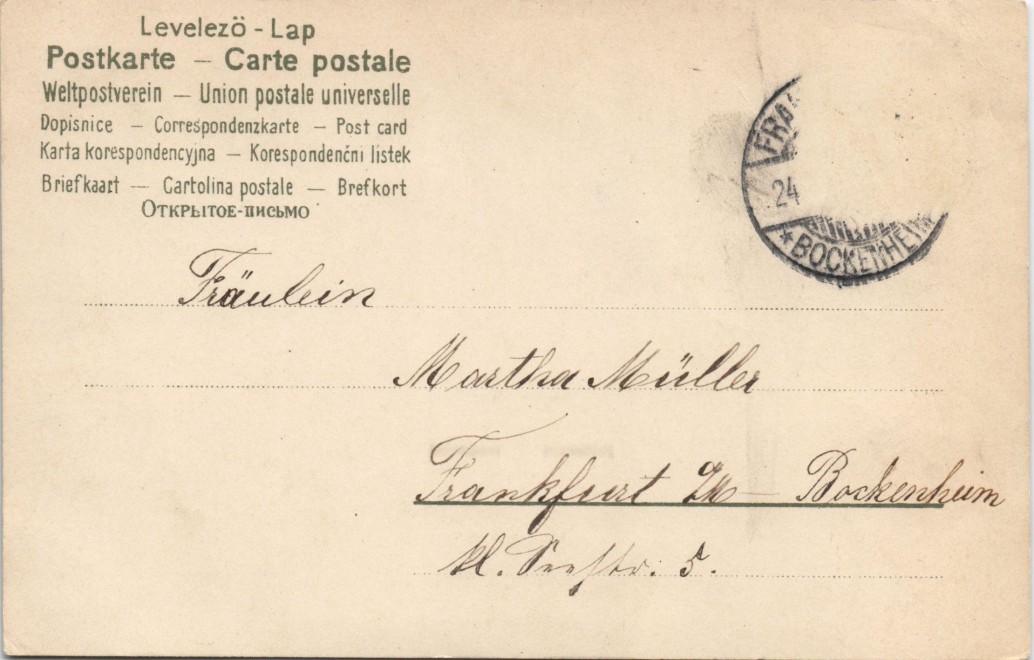 Levelezö - Lap
Postkarte — Carte postale
Weltpostverein — Union postale universelle
Dopisnice — Correspondenzkarte — Post card
Karta korespondencyjna — Korespondenčni listek
Briefkaart — Cartolina postale — Brefkort
Открытое-письмо
FRA
24
* BOCKENHEIM
Fräulein
Martha Müller
Frankfurt a/M — Bockenheim
kl. Seestr. 5.